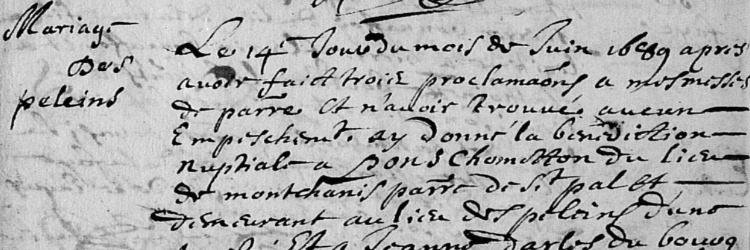 Mariage
Des
peleins
Le 14e Jour du mois de Juin 1689 apres
avoir faict trois proclamaōns a mes messes
de parre et n'avoir trouvé aucun
Empeschent ay donné la benediction
nuptiale a Pons Chometton du lieu
de montchanis parre de St pal et
demeurant au lieu des peleins d'une
Jeanne Darles du bourg